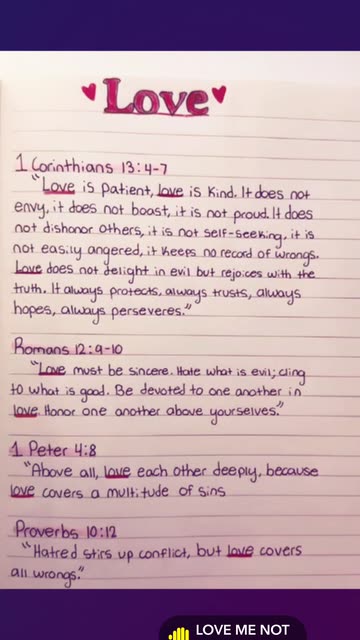 Love
1 Corinthians 13:4-7
"Love is patient, love is kind. It does not
envy, it does not boast, it is not proud. It does
not dishonor others, it is not self-seeking, it is
not easily angered, it keeps no record of wrongs.
Love does not delight in evil but rejoices with the
truth. It always protects, always trusts, always
hopes, always perseveres."
Romans 12:9-10
"Love must be sincere. Hate what is evil; cling
to what is good. Be devoted to one another in
love. Honor one another above yourselves."
1 Peter 4:8
"Above all, love each other deeply, because
love covers a multitude of sins
Proverbs 10:12
"Hatred stirs up conflict, but love covers
all wrongs."
LOVE ME NOT